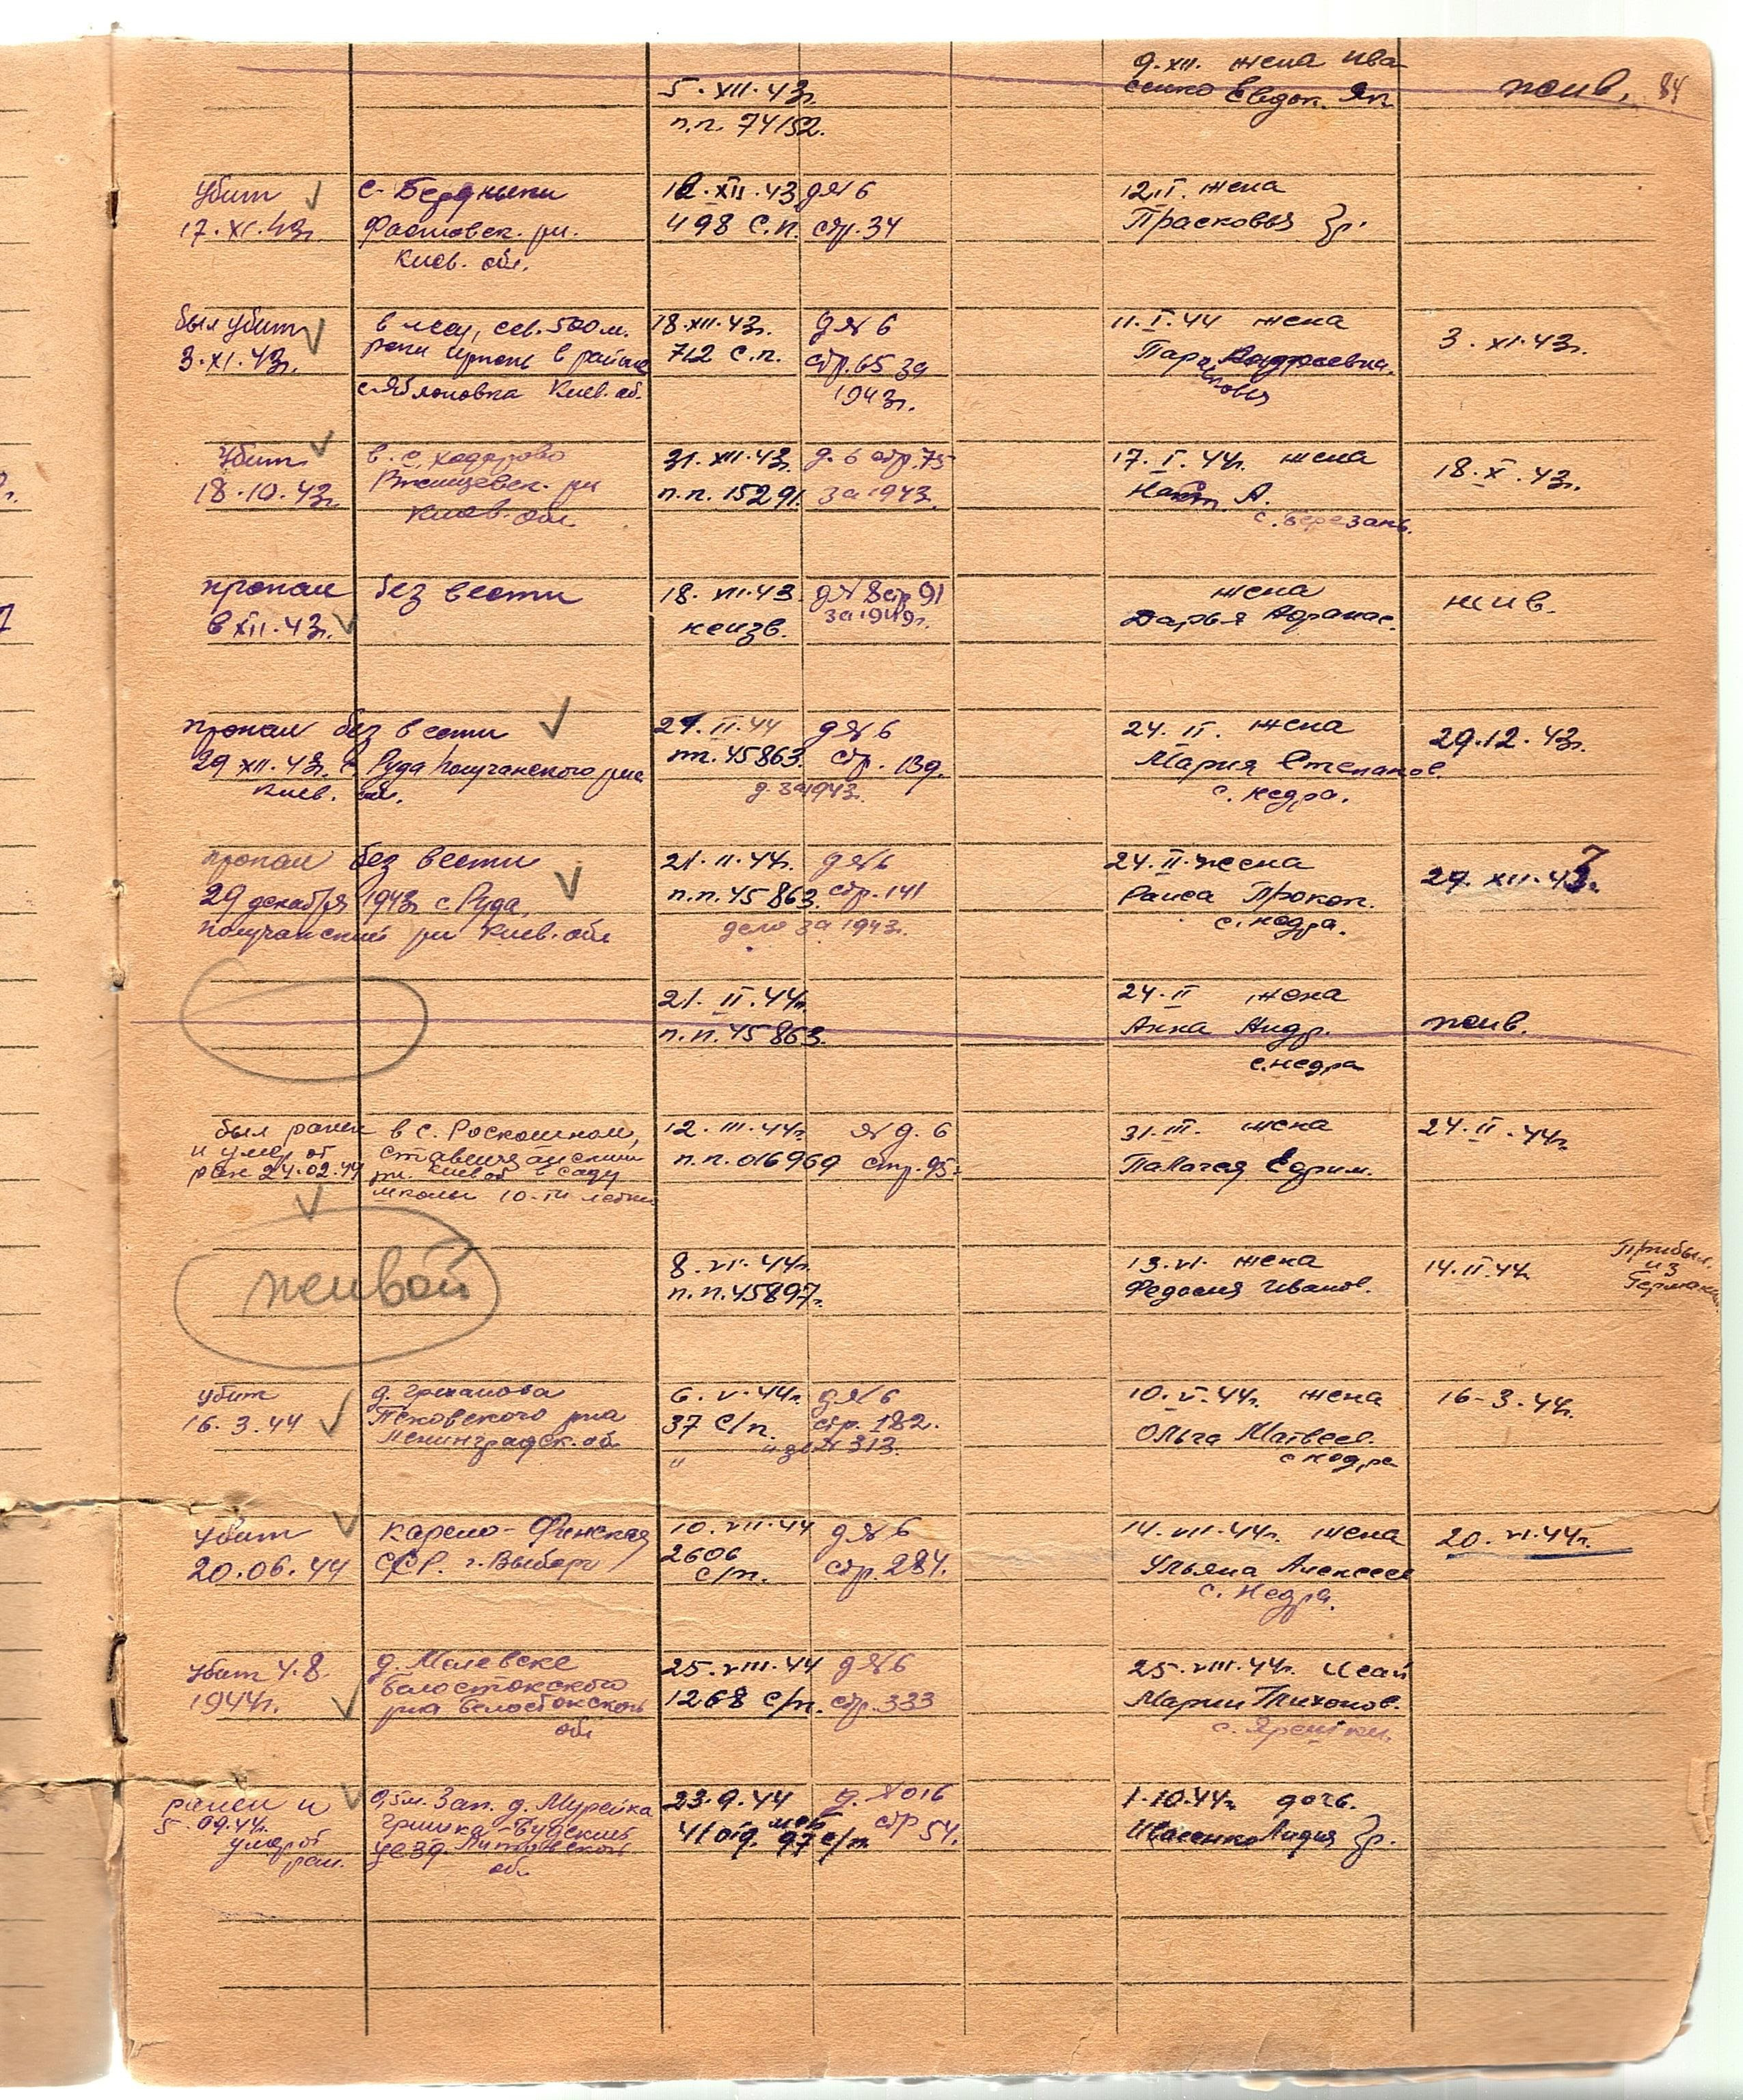 9.XII. жена Ива
сенко Евдок. Як.
жив.
84
5.XII.43г.
п.п. 74152.
убит
17.XI.43г.
Фастовск. р-н.
Киев. обл.
12.XII.43
498 с.п.
д№6
стр.34
12.II. жена
Прасковья
был убит
3.XI.43г.
в лесу, сев. 500 м.
реки Ирпень в районе
с. Яблоновка Киев. об.
18.XII.43г.
712 с.п.
д№6
стр.65 за
1943г.
11.I.44 жена
Параcковья Андреевна.
3.XI.43г.
Убит
18.10.43г.
в с. Ходорово
Ржищевск. р-н
Киев. обл.
31.XII.43г.
п.п. 15291.
д. 6 стр.75
за 1943.
17.I.44г. жена
с. Березань.
18.X.43г.
пропал без вести
в XII.43г.
18.VII.43
неизв.
д№8 стр 91
за 1949г.
жена
Дарья Афанас.
жив.
пропал без вести
29 XII.43г. с Руда
Киев. обл.
21.II.44
пп.45863.
д№6
стр. 139.
д. за 1943г.
24.II. жена
Мария Степанов.
с. Недра.
29.12.43г.
пропал без вести
29 декабря 1943г с Руда,
р-н Киев. обл
21.II.44г.
п.п.45863.
д№6
стр.141
дело за 1943г.
24.II. жена
Раиса Прокоп.
с. Недра.
29.XII.43г.
21.II.44г.
п.п.45863.
24.II жена
Анна Андр.
с. Недра
жив.
был ранен
и умер от
ран 24.02.44
в с. Роскошном,
Ставищанский
р-н. Киев об в саду
школы 10-ти летки
12.III.44г.
п.п.016969
№ д. 6
стр.95.
31.III. жена
Палагея Ефрим.
24.II.44г.
живой
8.VI.44г.
п.п.45897.
13.VI. жена
Федосия Иванов.
14.II.44г.
Прибыл.
из
Германии
убит
16.3.44
д. Гриханова
Псковского р-на
Ленинградск. об
6.V.44г.
37 с/п.
"
д№6
стр. 182.
и за № 313.
10.V.44г. жена
Ольга Матвеев.
с Недра
16-3.44г.
убит
20.06.44
Карело-Финская
ССР. г. Выборг
10.VII.44
2606
с/п.
д№6
стр.284.
14.VII.44г. жена
Ульяна Алексеев
с. Недра.
20.VI.44г.
убит 4.8.
1944г.
д. Малевске
Белостокского
р-на Белостокской
обл
25.VIII.44
1268 с/п.
д№6
стр.333
25.VIII.44г. Исай
Марии Тихонов.
с. Ярешки.
ранен и
5.09.44г.
умер от
ран.
0,5 м. Зап. д. Мурейка
Гришка-Будскиы
уезд. Литовской
об.
23.9.44
41 отд. мсб
97 с/п.
д. №016
стр 54.
1.10.44г. дочь.
Ивасенко Лидия